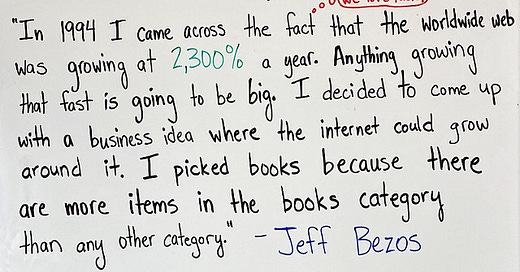 "In 1994 I came across the fact that the worldwide web
was growing at 2,300% a year. Anything growing
that fast is going to be big. I decided to come up
with a business idea where the internet could grow
around it. I picked books because there
are more items in the books category
than any other category." - Jeff Bezos